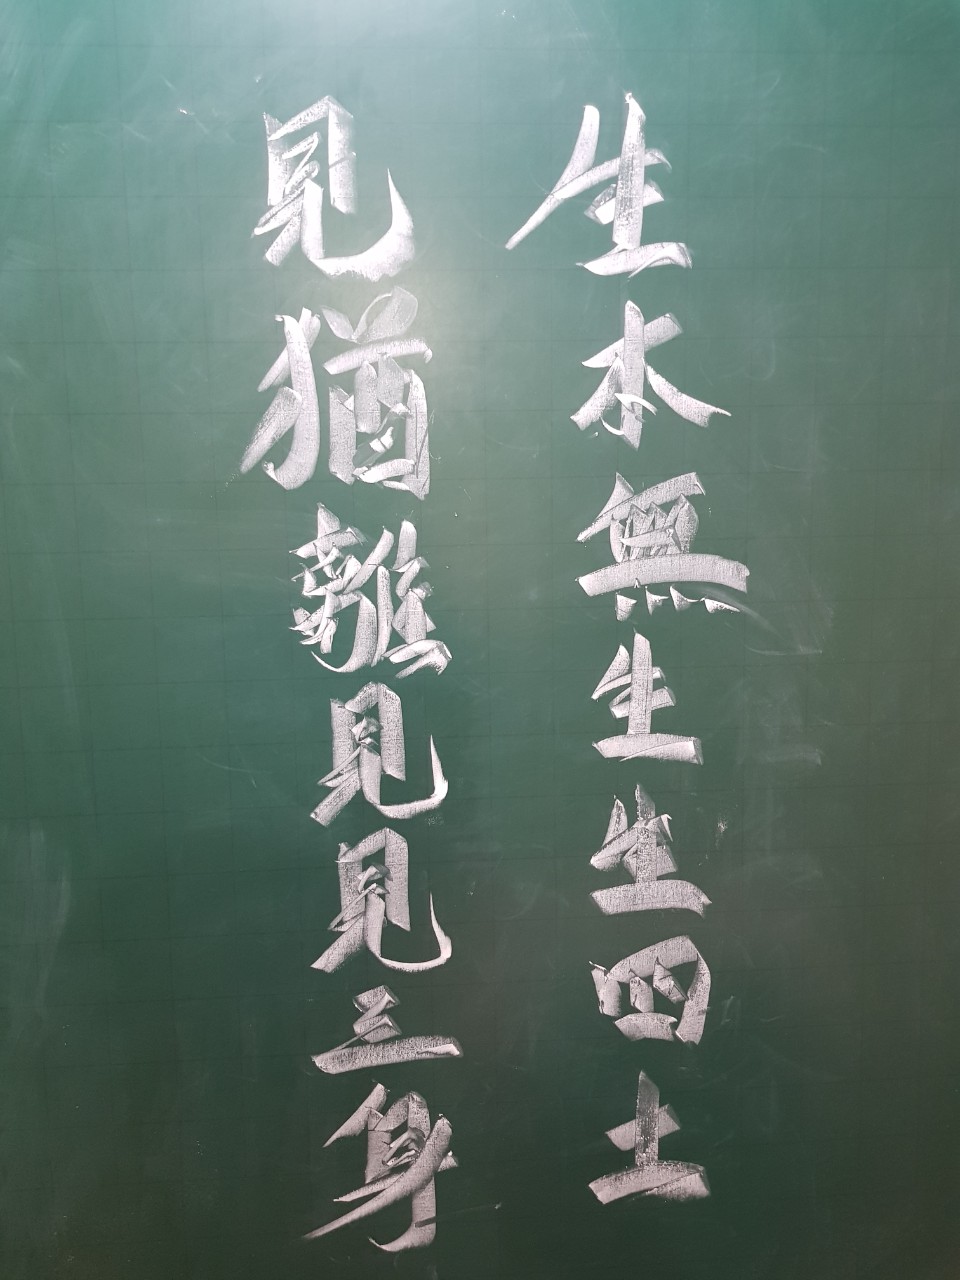 生本無生生四土
見猶離見見三身